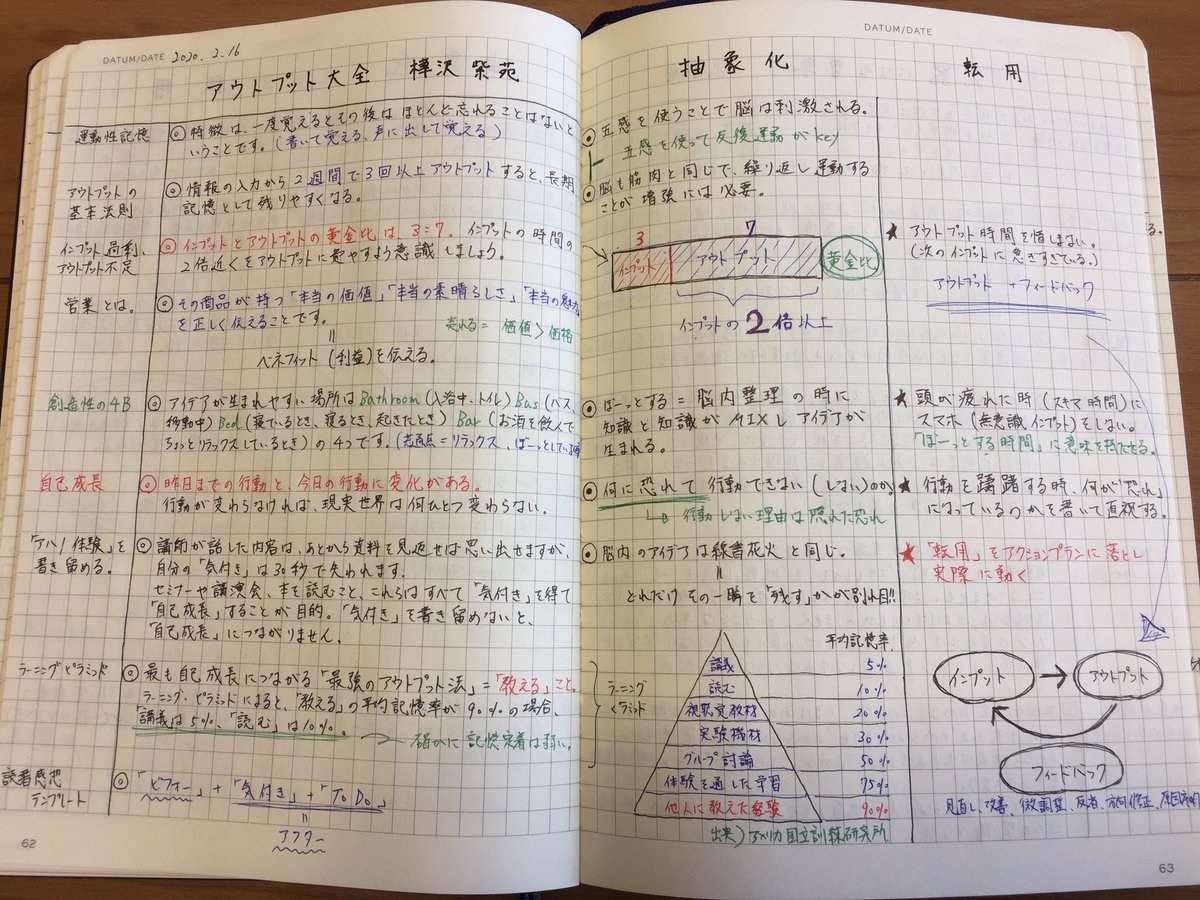 DATUM/DATE 2020. 2. 16
アウトプット大全 樺沢紫苑
運動性記憶
◎特徴は、一度覚えるとその後はほとんど忘れることはないと
いうことです。(書いて覚える、声に出して覚える)
アウトプットの
基本法則
◎情報の入力から2週間で3回以上アウトプットすると、長期
記憶として残りやすくなる。
インプット過剰、
アウトプット不足
◎インプットとアウトプットの黄金比は、3:7。インプットの時間の
2倍近くをアウトプットに費やすよう意識しましょう。
営業とは。
◎その商品が持つ「本当の価値」「本当の素晴らしさ」「本当の魅力」
を正しく伝えることです。
売れる = 価値 > 価格
=
ベネフィット(利益)を伝える。
創造性の4B
◎アイデアが生まれやすい場所はBathroom(入浴中、トイレ)Bus(バス、
移動中)Bed(寝ているとき、寝るとき、起きたとき)Bar(お酒を飲んで
ちょっとリラックスしているとき)の4つです。(共通点=リラックス、ぼーっとしている
自己成長
◎昨日までの行動と、今日の行動に変化がある。
行動が変わらなければ、現実世界は何ひとつ変わらない。
「アハ!体験」を
書き留める。
◎講師が話した内容は、あとから資料を見返せば思い出せますが、
自分の「気付き」は30秒で失われます。
セミナーや講演会、本を読むこと、これらはすべて「気付き」を得て
「自己成長」することが目的。「気付き」を書き留めないと、
「自己成長」につながりません。
ラーニングピラミッド
◎最も自己成長につながる「最強のアウトプット法」=「教える」こと。
ラーニング・ピラミッドによると、「教える」の平均記憶率が90%の場合、
「講義は5%、「読む」は10%。
→確かに記憶定着は弱い。
読者感想
テンプレート
◎「ビフォー」+「気付き」+「To Do」
=
アフター
62
DATUM/DATE
抽象化
転用
◎五感を使うことで脳は刺激される。
五感を使って反復運動がkey
◎脳も筋肉と同じで、繰り返し運動する
ことが増強には必要。
3 7
インプット アウトプット 黄金比
インプットの2倍以上
★アウトプット時間を惜しまない。
(次のインプットに急ぎすぎている。)
アウトプット + フィードバック
る。
◎ぼーっとする = 脳内整理の時に
知識と知識がMIXしアイデアが
生まれる。
★頭が疲れた時(スキマ時間)に
スマホ(無意識インプット)をしない。
「ぼーっとする時間」に意味を持たせる。
◎何に恐れて行動できない(しない)のか。
行動しない理由は隠れた恐れ
★行動を躊躇する時、何が「恐れ」
になっているのかを書いて直視する。
◎脳内のアイデアは線香花火と同じ。
=
どれだけその一瞬を「残す」かが別れ目!!
★「転用」をアクションプランに落とし
実際に動く
ラーニング
ピラミッド
平均記憶率
講義 5%
読む 10%
視聴覚教材 20%
実験機材 30%
グループ討論 50%
体験を通した学習 75%
他人に教えた経験 90%
出来)アメリカ国立訓練研究所
インプット → アウトプット
フィードバック
見直し、改善、微調整、反省、方向修正、原因究明
63